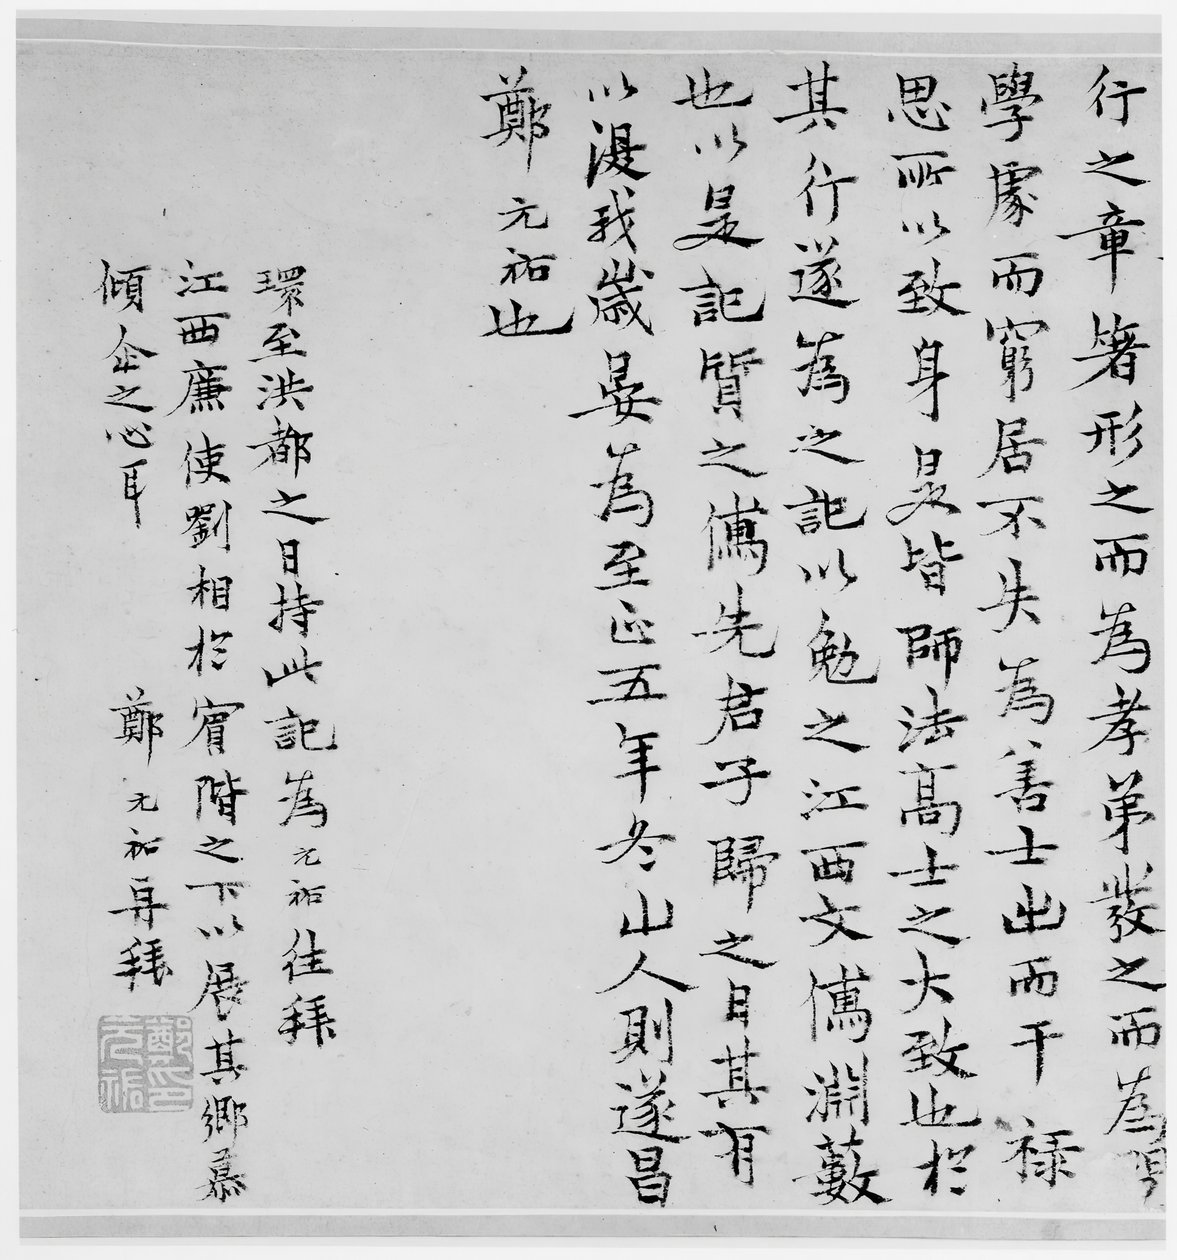 行之章箸形之而為孝弟發之而為
學處而窮居不失為善士出而干祿
思所以致身是皆師法高士之大致也於
其行遂為之記以勉之江西文儒淵藪
也以是記質之儒先君子歸之日其有
以湿我歲晏為至正五年冬山人則遂昌
鄭元祐也
環至洪都之日持此記為元祐往拜
江西廉使劉相於賓階之下以展其鄉慕
傾企之心耳 鄭元祐再拜
鄭元祐印